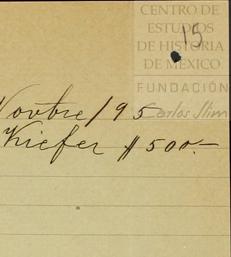 CENTRO DE
ESTUDIOS
DE HISTORIA
DE MEXICO
15
FUNDACIÓN
Carlos Slim
Novbre / 95
Kiefer $500.-